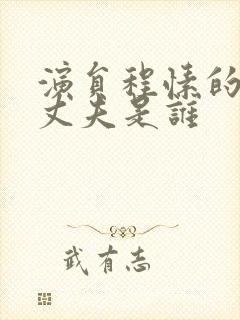 演員程愫的
丈夫是誰
武有志